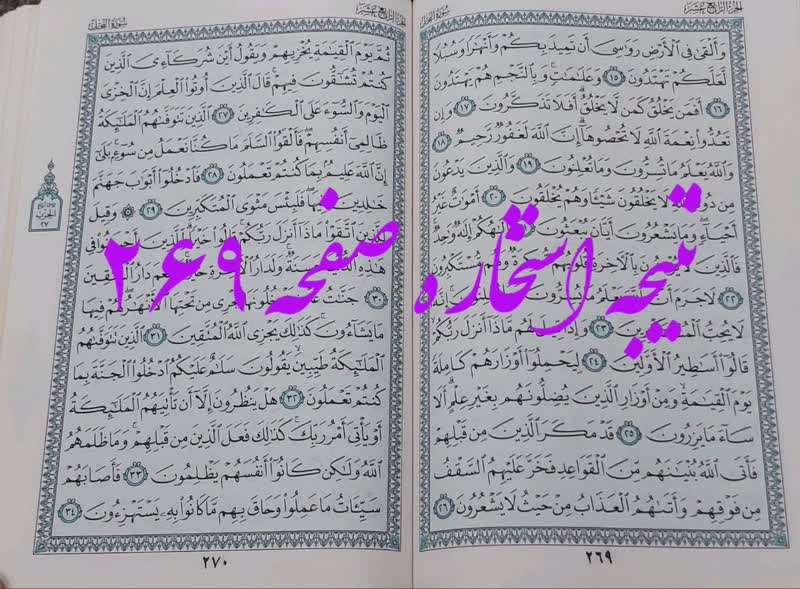 الجزء الرابع عشر
سورة النحل
وَأَلْقَىٰ فِى ٱلْأَرْضِ رَوَٰسِىَ أَن تَمِيدَ بِكُمْ وَأَنْهَـٰرًا وَسُبُلًا
لَّعَلَّكُمْ تَهْتَدُونَ ١٥ وَعَلَـٰمَـٰتٍ وَبِٱلنَّجْمِ هُمْ يَهْتَدُونَ
١٦ أَفَمَن يَخْلُقُ كَمَن لَّا يَخْلُقُ أَفَلَا تَذَكَّرُونَ ١٧ وَإِن
تَعُدُّوا۟ نِعْمَةَ ٱللَّهِ لَا تُحْصُوهَآ إِنَّ ٱللَّهَ لَغَفُورٌ رَّحِيمٌ ١٨
وَٱللَّهُ يَعْلَمُ مَا تُسِرُّونَ وَمَا تُعْلِنُونَ ١٩ وَٱلَّذِينَ يَدْعُونَ
مِن دُونِ لَا يَخْلُقُونَ شَيْـًٔا وَهُمْ يُخْلَقُونَ ٢٠ أَمْوَٰتٌ غَيْرُ
أَحْيَآءٍ وَمَا يَشْعُرُونَ أَيَّانَ يُبْعَثُونَ إِلَـٰهُكُمْ إِلَـٰهٌ وَٰحِدٌ
فَٱلَّذِينَ لَا يُؤْمِنُونَ بِٱلْـَٔاخِرَةِ قُلُوبُهُم مُّنكِرَةٌ وَهُم مُّسْتَكْبِرُونَ
٢٢ لَا جَرَمَ أَنَّ ٱللَّهَ يَعْلَمُ مَا يُسِرُّونَ وَمَا يُعْلِنُونَ إِنَّهُۥ
لَا يُحِبُّ ٱلْمُسْتَكْبِرِينَ ٢٣ وَإِذَا قِيلَ لَهُم مَّاذَآ أَنزَلَ رَبُّكُمْ
قَالُوٓا۟ أَسَـٰطِيرُ ٱلْأَوَّلِينَ ٢٤ لِيَحْمِلُوٓا۟ أَوْزَارَهُمْ كَامِلَةً
يَوْمَ ٱلْقِيَـٰمَةِ وَمِنْ أَوْزَارِ ٱلَّذِينَ يُضِلُّونَهُم بِغَيْرِ عِلْمٍ أَلَا
سَآءَ مَا يَزِرُونَ ٢٥ قَدْ مَكَرَ ٱلَّذِينَ مِن قَبْلِهِمْ
فَأَتَى ٱللَّهُ بُنْيَـٰنَهُم مِّنَ ٱلْقَوَاعِدِ فَخَرَّ عَلَيْهِمُ ٱلسَّقْفُ
مِن فَوْقِهِمْ وَأَتَىٰهُمُ ٱلْعَذَابُ مِنْ حَيْثُ لَا يَشْعُرُونَ ٢٦
٢٦٩
الجزء الرابع عشر
سورة النحل
ثُمَّ يَوْمَ ٱلْقِيَـٰمَةِ يُخْزِيهِمْ وَيَقُولُ أَيْنَ شُرَكَآءِىَ ٱلَّذِينَ
كُنتُمْ تُشَـٰٓقُّونَ فِيهِمْ قَالَ ٱلَّذِينَ أُوتُوا۟ ٱلْعِلْمَ إِنَّ ٱلْخِزْىَ
ٱلْيَوْمَ وَٱلسُّوٓءَ عَلَى ٱلْكَـٰفِرِينَ ٢٧ ٱلَّذِينَ تَتَوَفَّىٰهُمُ ٱلْمَلَـٰٓئِكَةُ
ظَالِمِىٓ أَنفُسِهِمْ فَأَلْقَوُا۟ ٱلسَّلَمَ مَا كُنَّا نَعْمَلُ مِن سُوٓءٍ بَلَىٰٓ
إِنَّ ٱللَّهَ عَلِيمٌۢ بِمَا كُنتُمْ تَعْمَلُونَ ٢٨ فَٱدْخُلُوٓا۟ أَبْوَٰبَ جَهَنَّمَ
خَـٰلِدِينَ فِيهَا فَلَبِئْسَ مَثْوَى ٱلْمُتَكَبِّرِينَ ٢٩ ۞ وَقِيلَ
لِلَّذِينَ ٱتَّقَوْا۟ مَاذَآ أَنزَلَ رَبُّكُمْ قَالُوا۟ خَيْرًا لِّلَّذِينَ أَحْسَنُوا۟ فِى
هَـٰذِهِ ٱلدُّنْيَا حَسَنَةٌ وَلَدَارُ ٱلْـَٔاخِرَةِ خَيْرٌ وَلَنِعْمَ دَارُ ٱلْمُتَّقِينَ
٣٠ جَنَّـٰتُ عَدْنٍ يَدْخُلُونَهَا تَجْرِى مِن تَحْتِهَا ٱلْأَنْهَـٰرُ لَهُمْ فِيهَا
مَا يَشَآءُونَ كَذَٰلِكَ يَجْزِى ٱللَّهُ ٱلْمُتَّقِينَ ٣١ ٱلَّذِينَ تَتَوَفَّىٰهُمُ
ٱلْمَلَـٰٓئِكَةُ طَيِّبِينَ يَقُولُونَ سَلَـٰمٌ عَلَيْكُمُ ٱدْخُلُوا۟ ٱلْجَنَّةَ بِمَا
كُنتُمْ تَعْمَلُونَ ٣٢ هَلْ يَنظُرُونَ إِلَّآ أَن تَأْتِيَهُمُ ٱلْمَلَـٰٓئِكَةُ
أَوْ يَأْتِىَ أَمْرُ رَبِّكَ كَذَٰلِكَ فَعَلَ ٱلَّذِينَ مِن قَبْلِهِمْ وَمَا ظَلَمَهُمُ
ٱللَّهُ وَلَـٰكِن كَانُوٓا۟ أَنفُسَهُمْ يَظْلِمُونَ ٣٣ فَأَصَابَهُمْ
سَيِّـَٔاتُ مَا عَمِلُوا۟ وَحَاقَ بِهِم مَّا كَانُوا۟ بِهِۦ يَسْتَهْزِءُونَ ٣٤
٢٧٠
الحزب
٢٧
نتیجه استخاره صفحه ۲۶۹